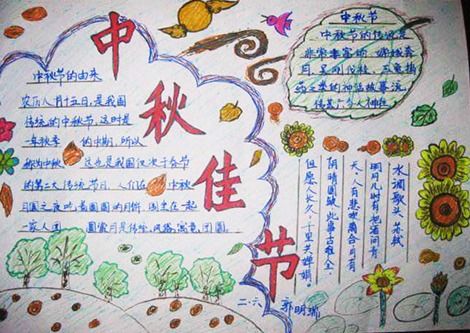 中秋佳节
中秋节的由来
农历八月十五日,是我国
传统的中秋节,这时是
一年秋季 的中期,所以
称为中秋 这也是我国仅次于春节
的第二大传统节日,人们在 中秋
月圆之夜吃着圆圆的月饼,围坐在一起
一家人团 圆
中秋节
中秋节的传说是
非常丰富的,嫦娥奔
月,吴刚伐桂,玉兔捣
药之类的神话故事流
传甚广
水调歌头 苏轼
明月几时有 把酒问青
天 人有悲欢离合 月有
阴晴圆缺 此事古难全
但愿人长久 千里共婵娟。
二.六 郭明瑞